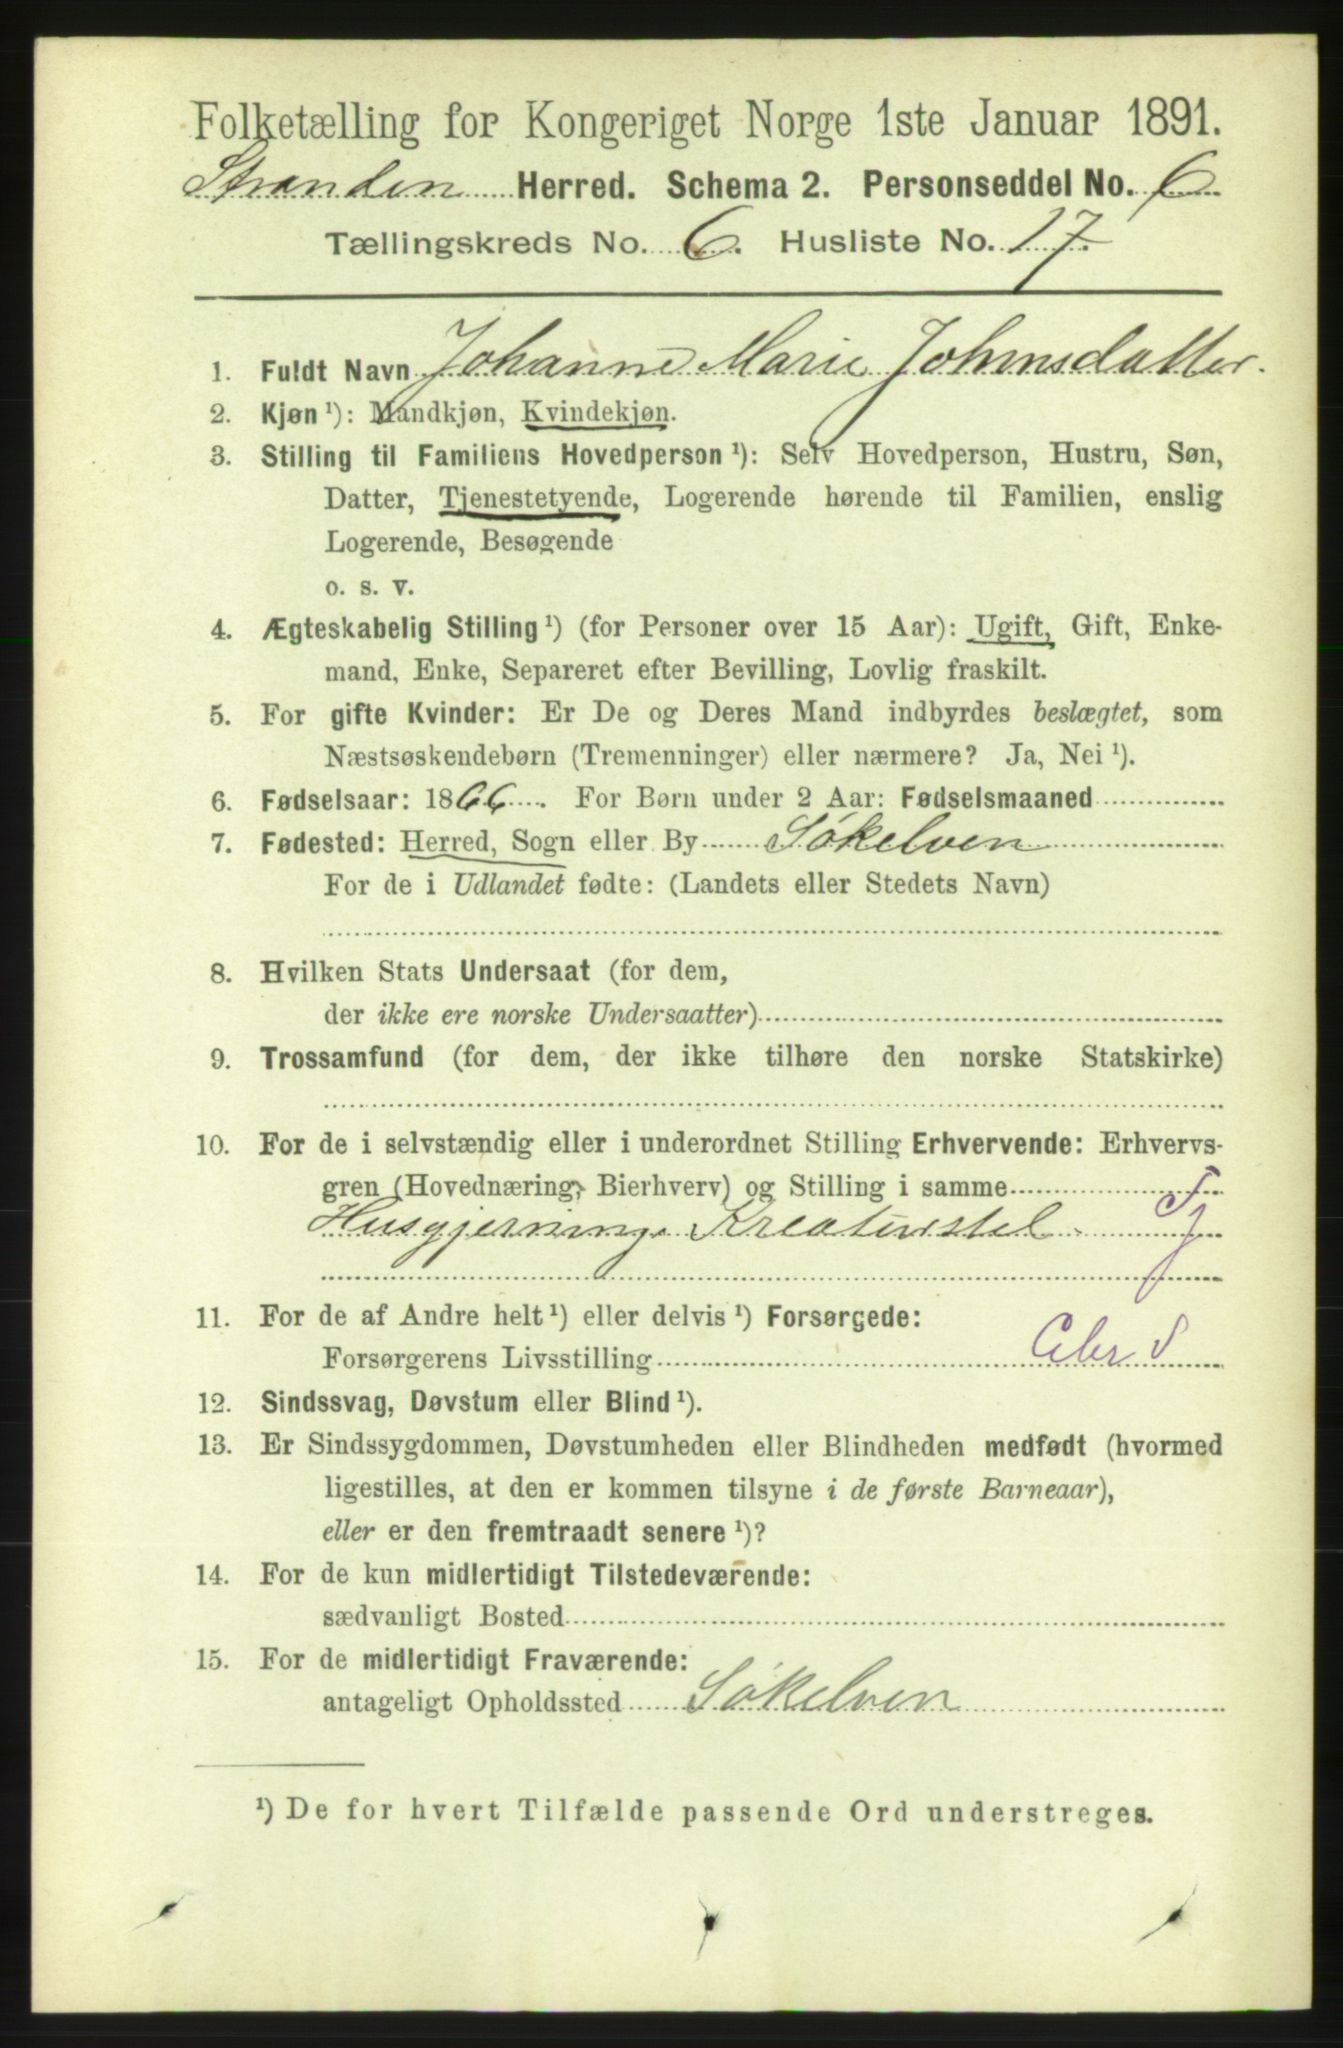 Folketælling for Kongeriget Norge 1ste Januar 1891.
Stranden Herred. Schema 2. Personseddel No. 6
Tællingskreds No. 6. Husliste No. 17.
1. Fuldt Navn Johanne Marie Johnsdatter.
2. Kjøn ¹): Mandkjøn, Kvindekjøn.
3. Stilling til Familiens Hovedperson ¹): Selv Hovedperson, Hustru, Søn,
Datter, Tjenestetyende, Logerende hørende til Familien, enslig
Logerende, Besøgende
o. s. v.
4. Ægteskabelig Stilling ¹) (for Personer over 15 Aar): Ugift, Gift, Enke-
mand, Enke, Separeret efter Bevilling, Lovlig fraskilt.
5. For gifte Kvinder: Er De og Deres Mand indbyrdes beslægtet, som
Næstsøskendebørn (Tremenninger) eller nærmere? Ja, Nei ¹).
6. Fødselsaar: 1866. For Børn under 2 Aar: Fødselsmaaned
7. Fødested: Herred, Sogn eller By Søkelven
For de i Udlandet fødte: (Landets eller Stedets Navn)
8. Hvilken Stats Undersaat (for dem,
der ikke ere norske Undersaatter)
9. Trossamfund (for dem, der ikke tilhøre den norske Statskirke)
10. For de i selvstændig eller i underordnet Stilling Erhvervende: Erhvervs-
gren (Hovednæring, Bierhverv) og Stilling i samme
Husgjerning. Kreaturstel. Tj
11. For de af Andre helt ¹) eller delvis ¹) Forsørgede:
Forsørgerens Livsstilling
12. Sindssvag, Døvstum eller Blind ¹).
13. Er Sindssygdommen, Døvstumheden eller Blindheden medfødt (hvormed
ligestilles, at den er kommen tilsyne i de første Barneaar),
eller er den fremtraadt senere ¹)?
14. For de kun midlertidigt Tilstedeværende:
sædvanligt Bosted
15. For de midlertidigt Fraværende:
antageligt Opholdssted Søkelven
¹) De for hvert Tilfælde passende Ord understreges.